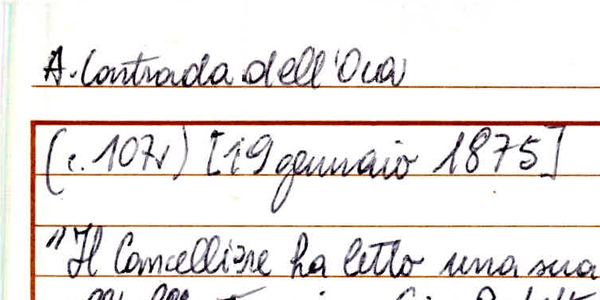 A. Contrada dell'Oca
(c. 107v) [19 gennaio 1875]
"Il Cancelliere ha letto una sua